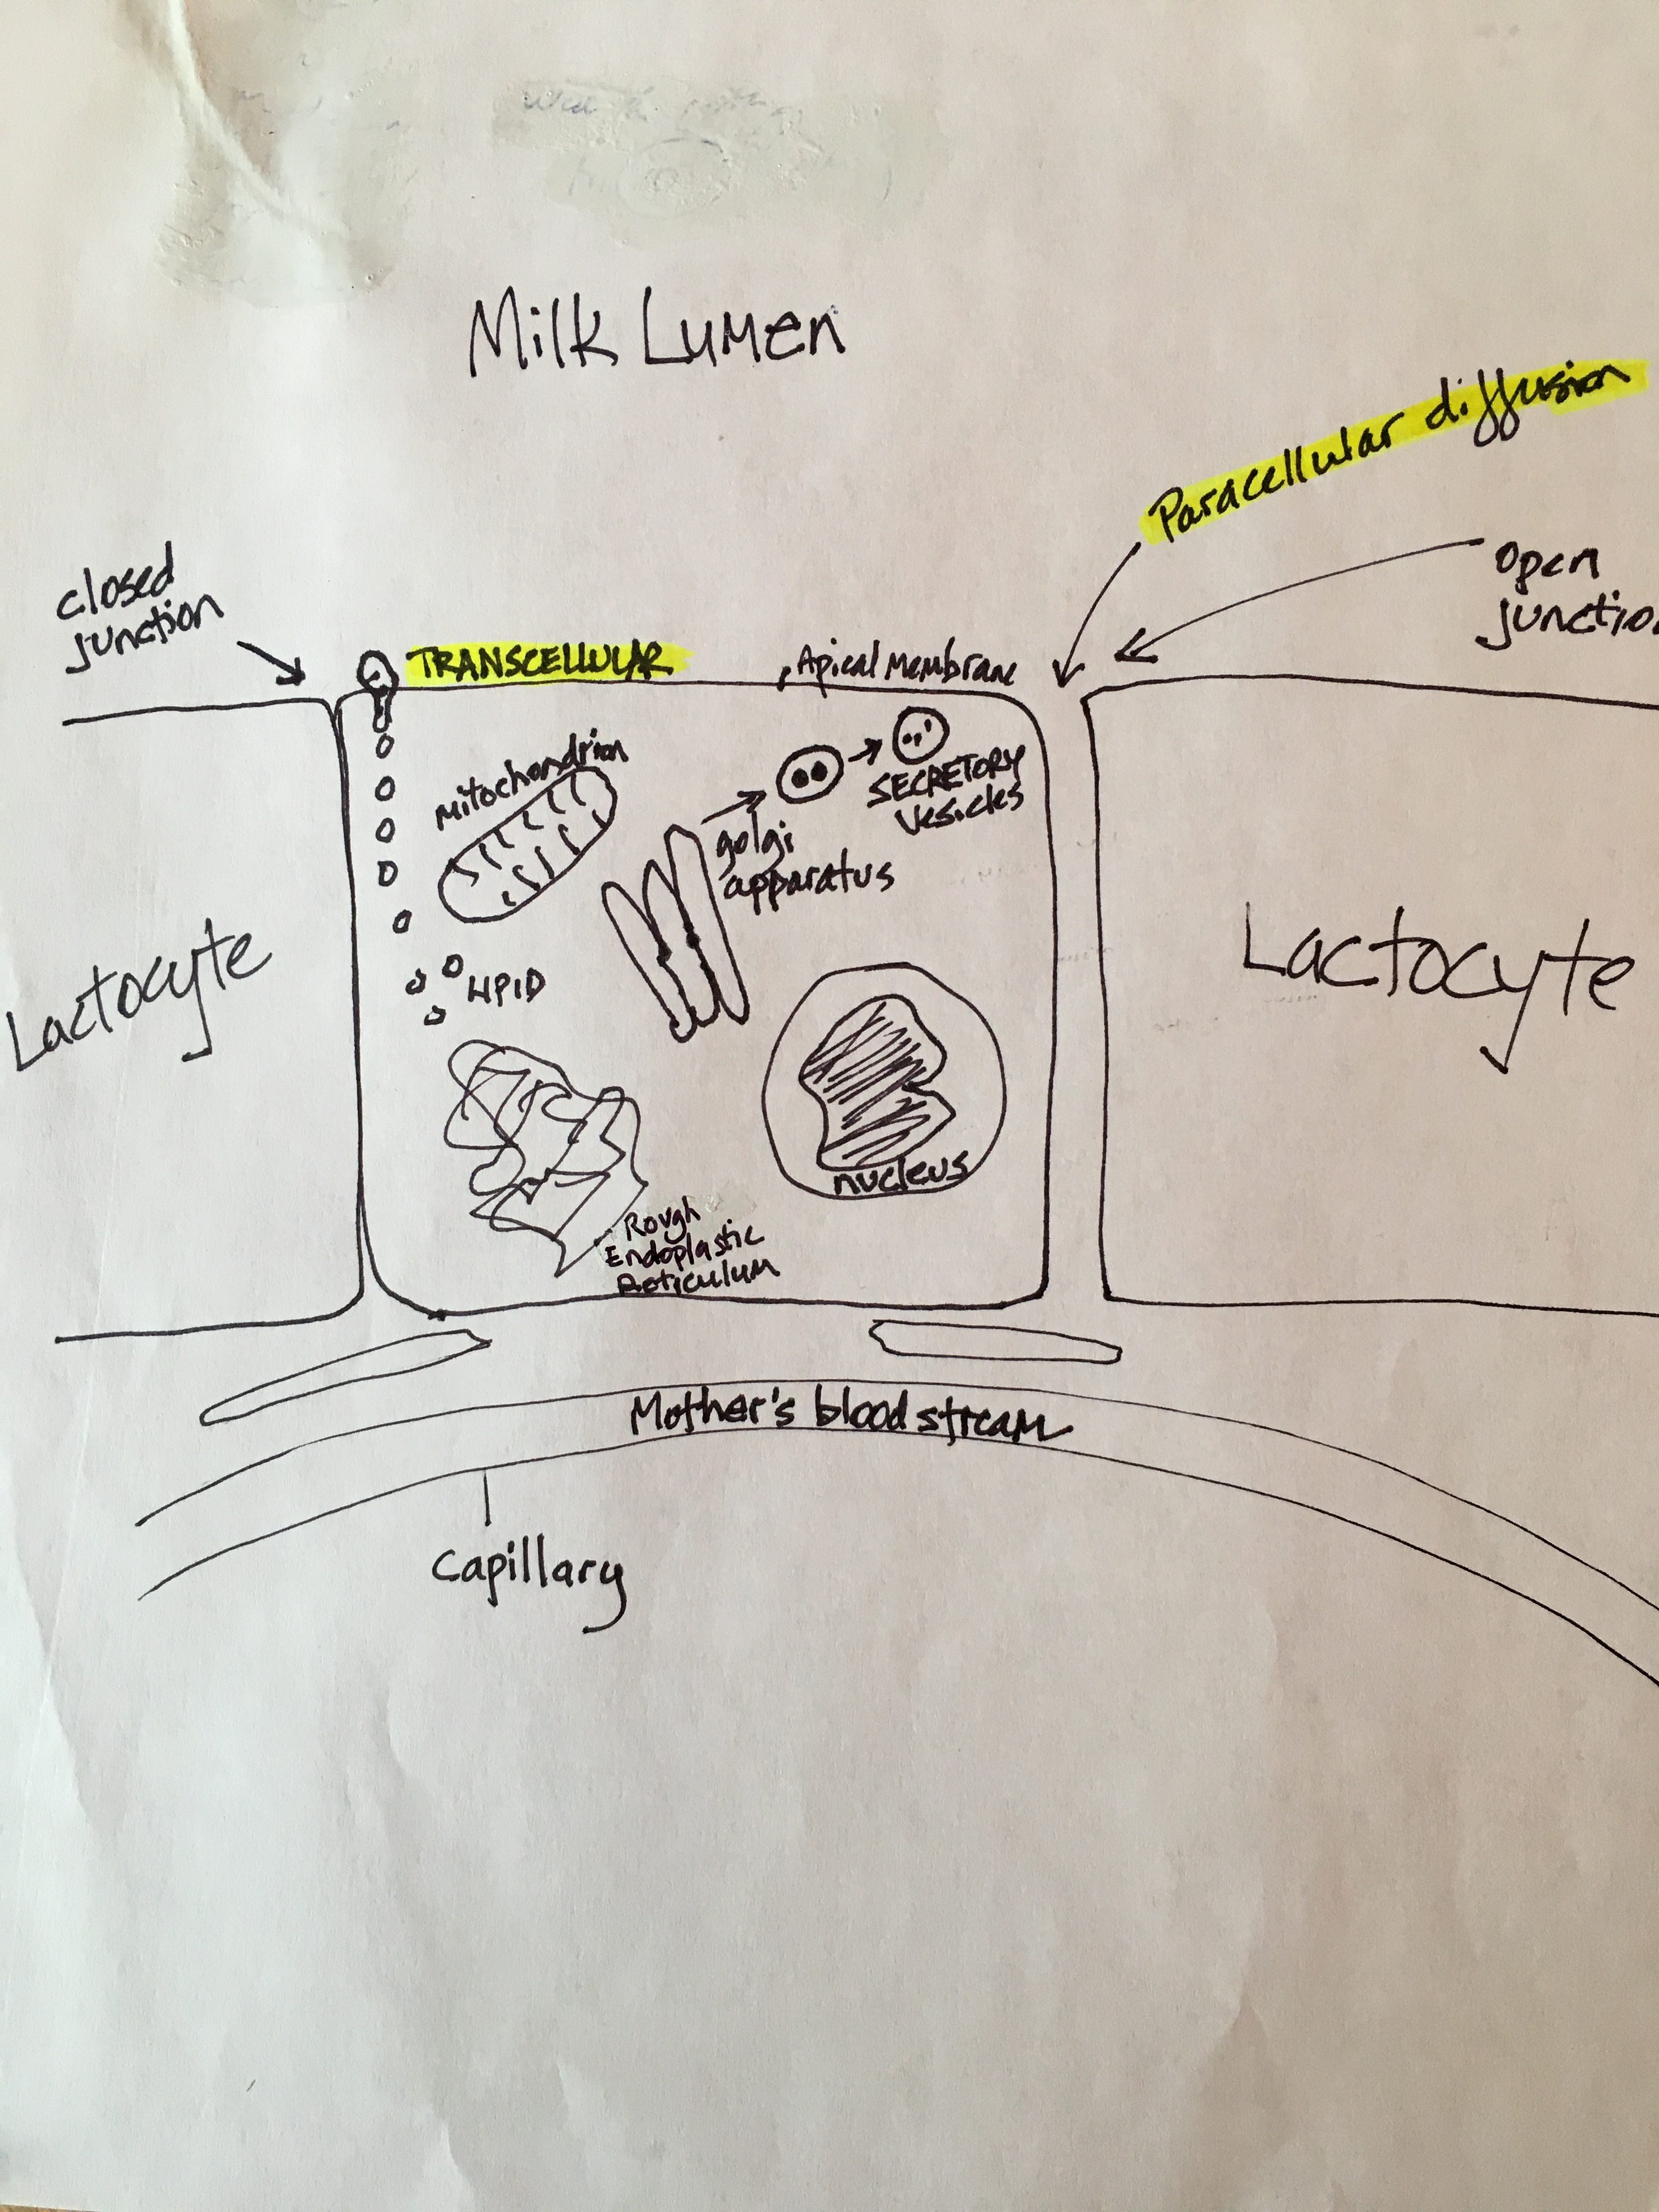 Milk Lumen
Paracellular diffusion
closed
junction
open
junctio
TRANSCELLULAR
Apical Membrane
Mitochondrion
SECRETORY
Vesicles
golgi
apparatus
Lactocyte
LIPID
Lactocyte
nucleus
Rough
Endoplastic
Reticulum
Mother's blood stream
Capillary